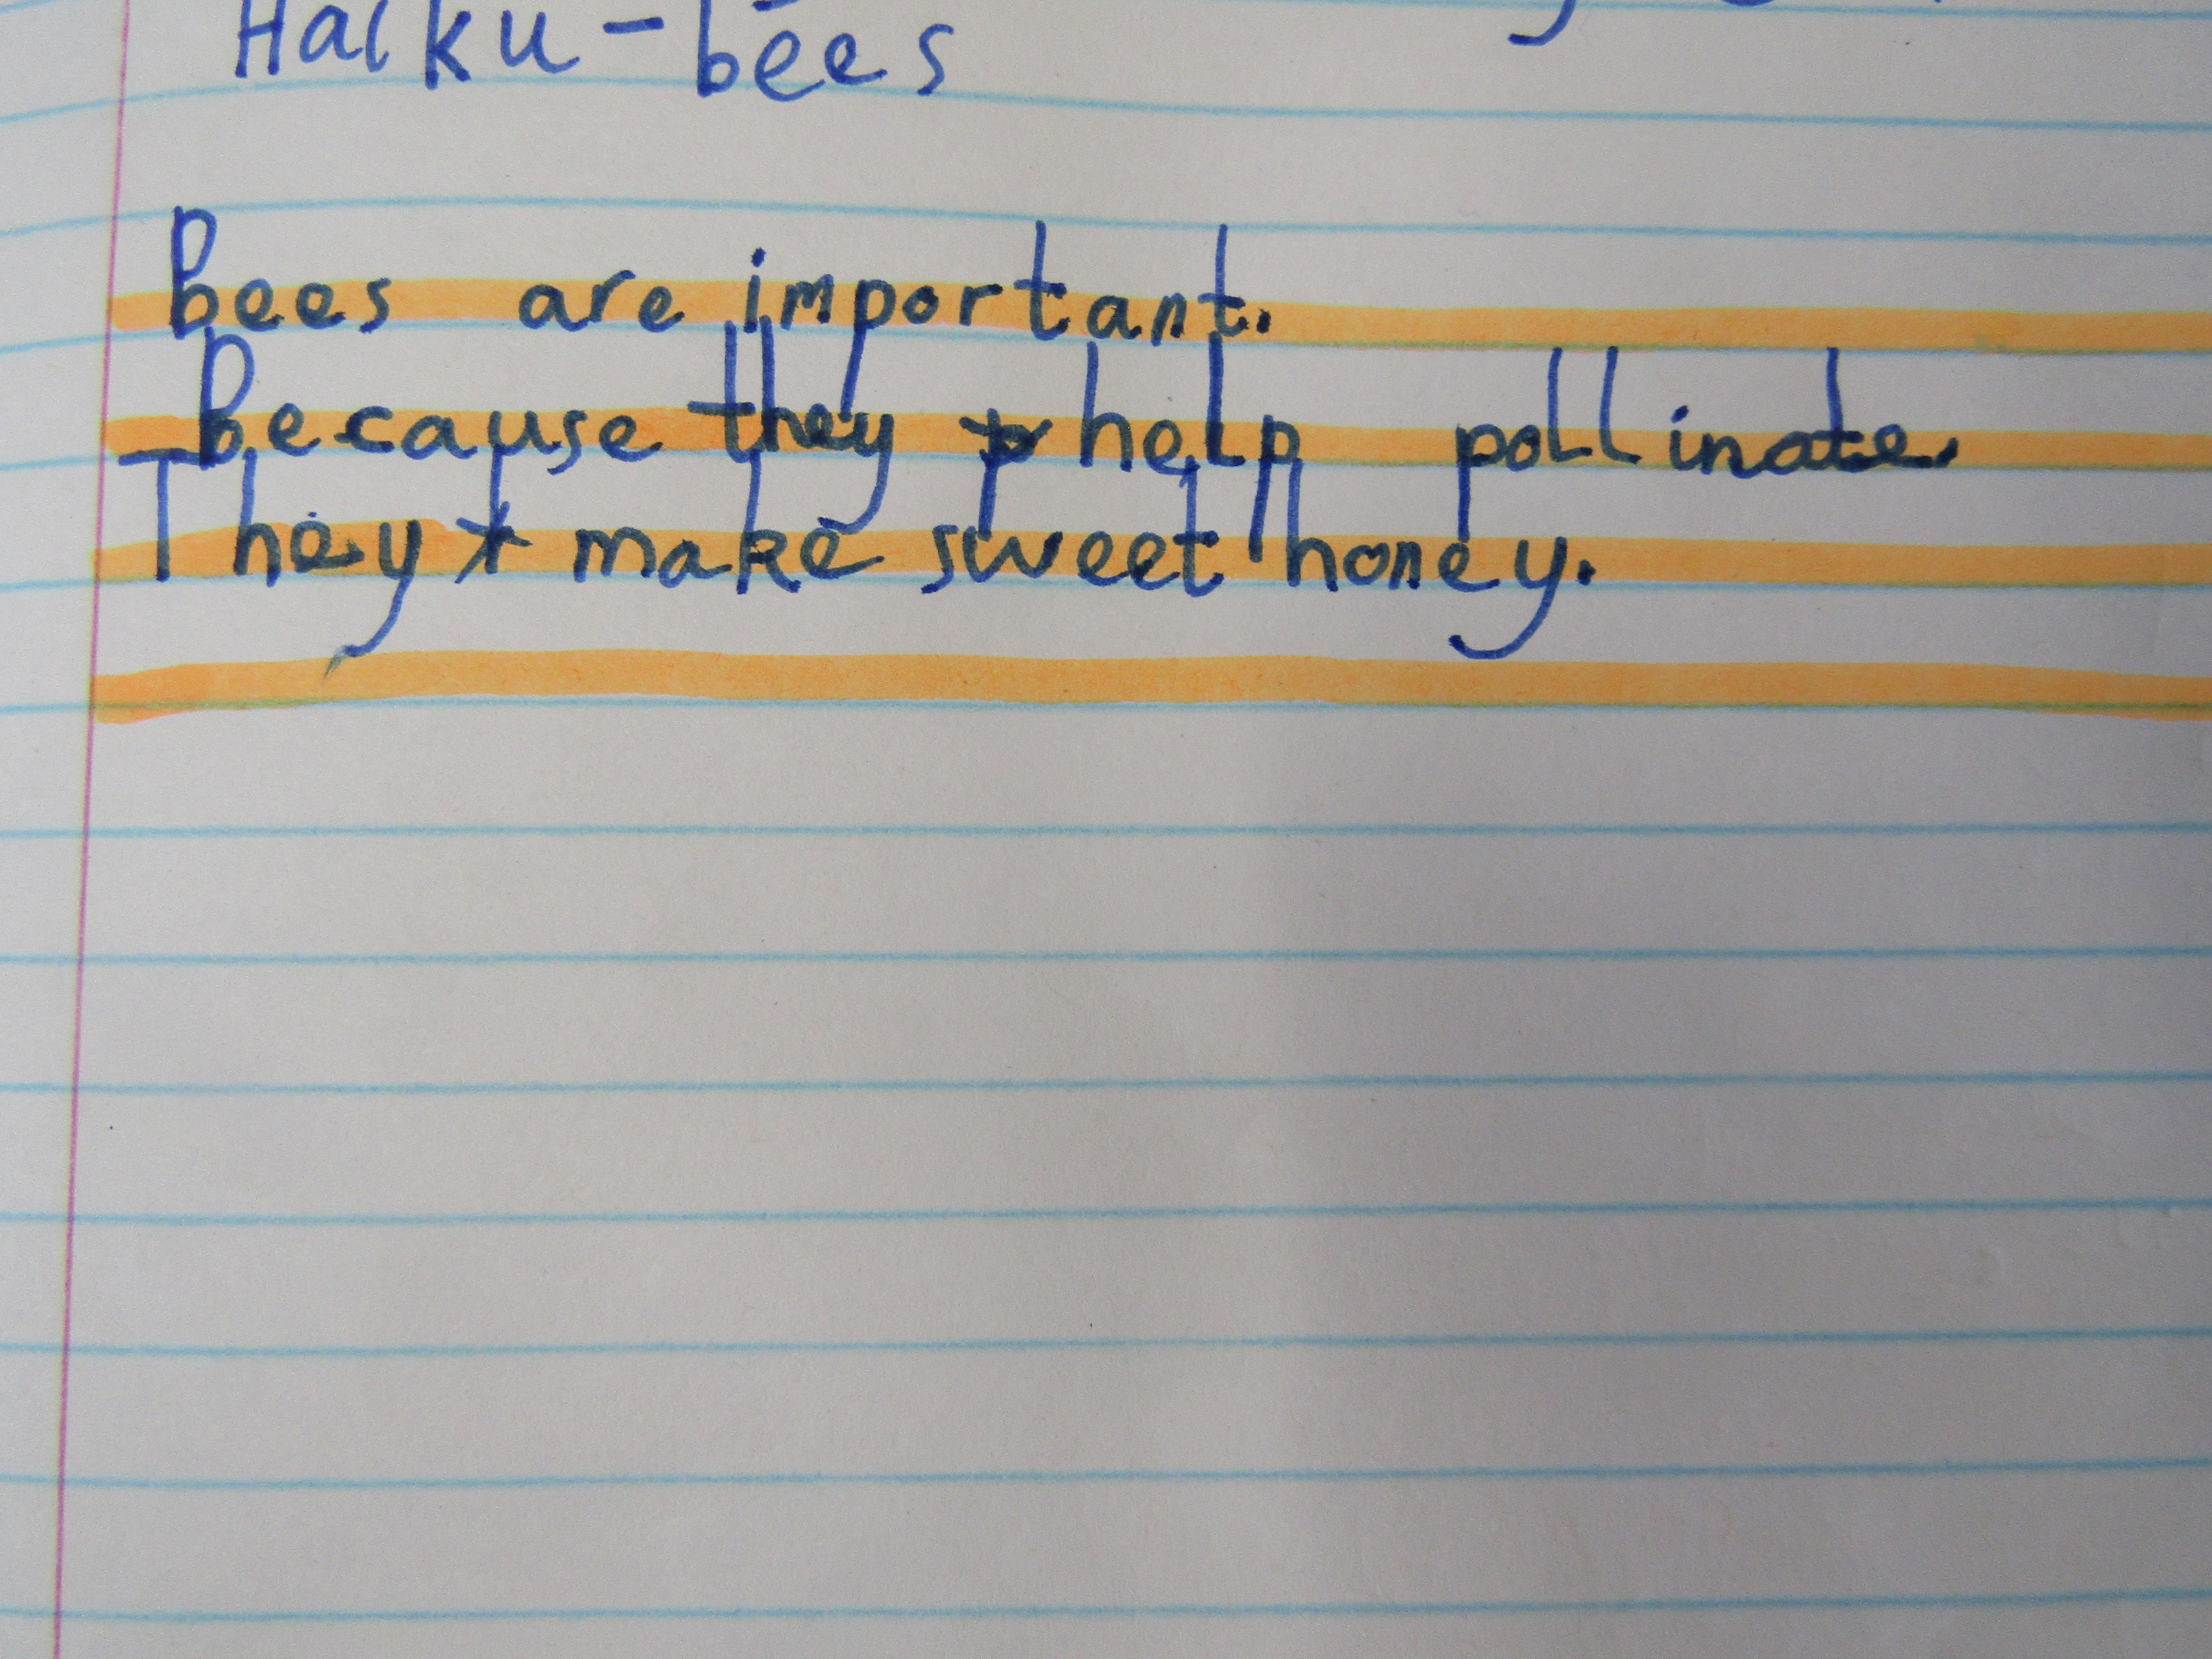 Haiku - bees
Bees are important.
Because they help pollinate.
They make sweet honey.